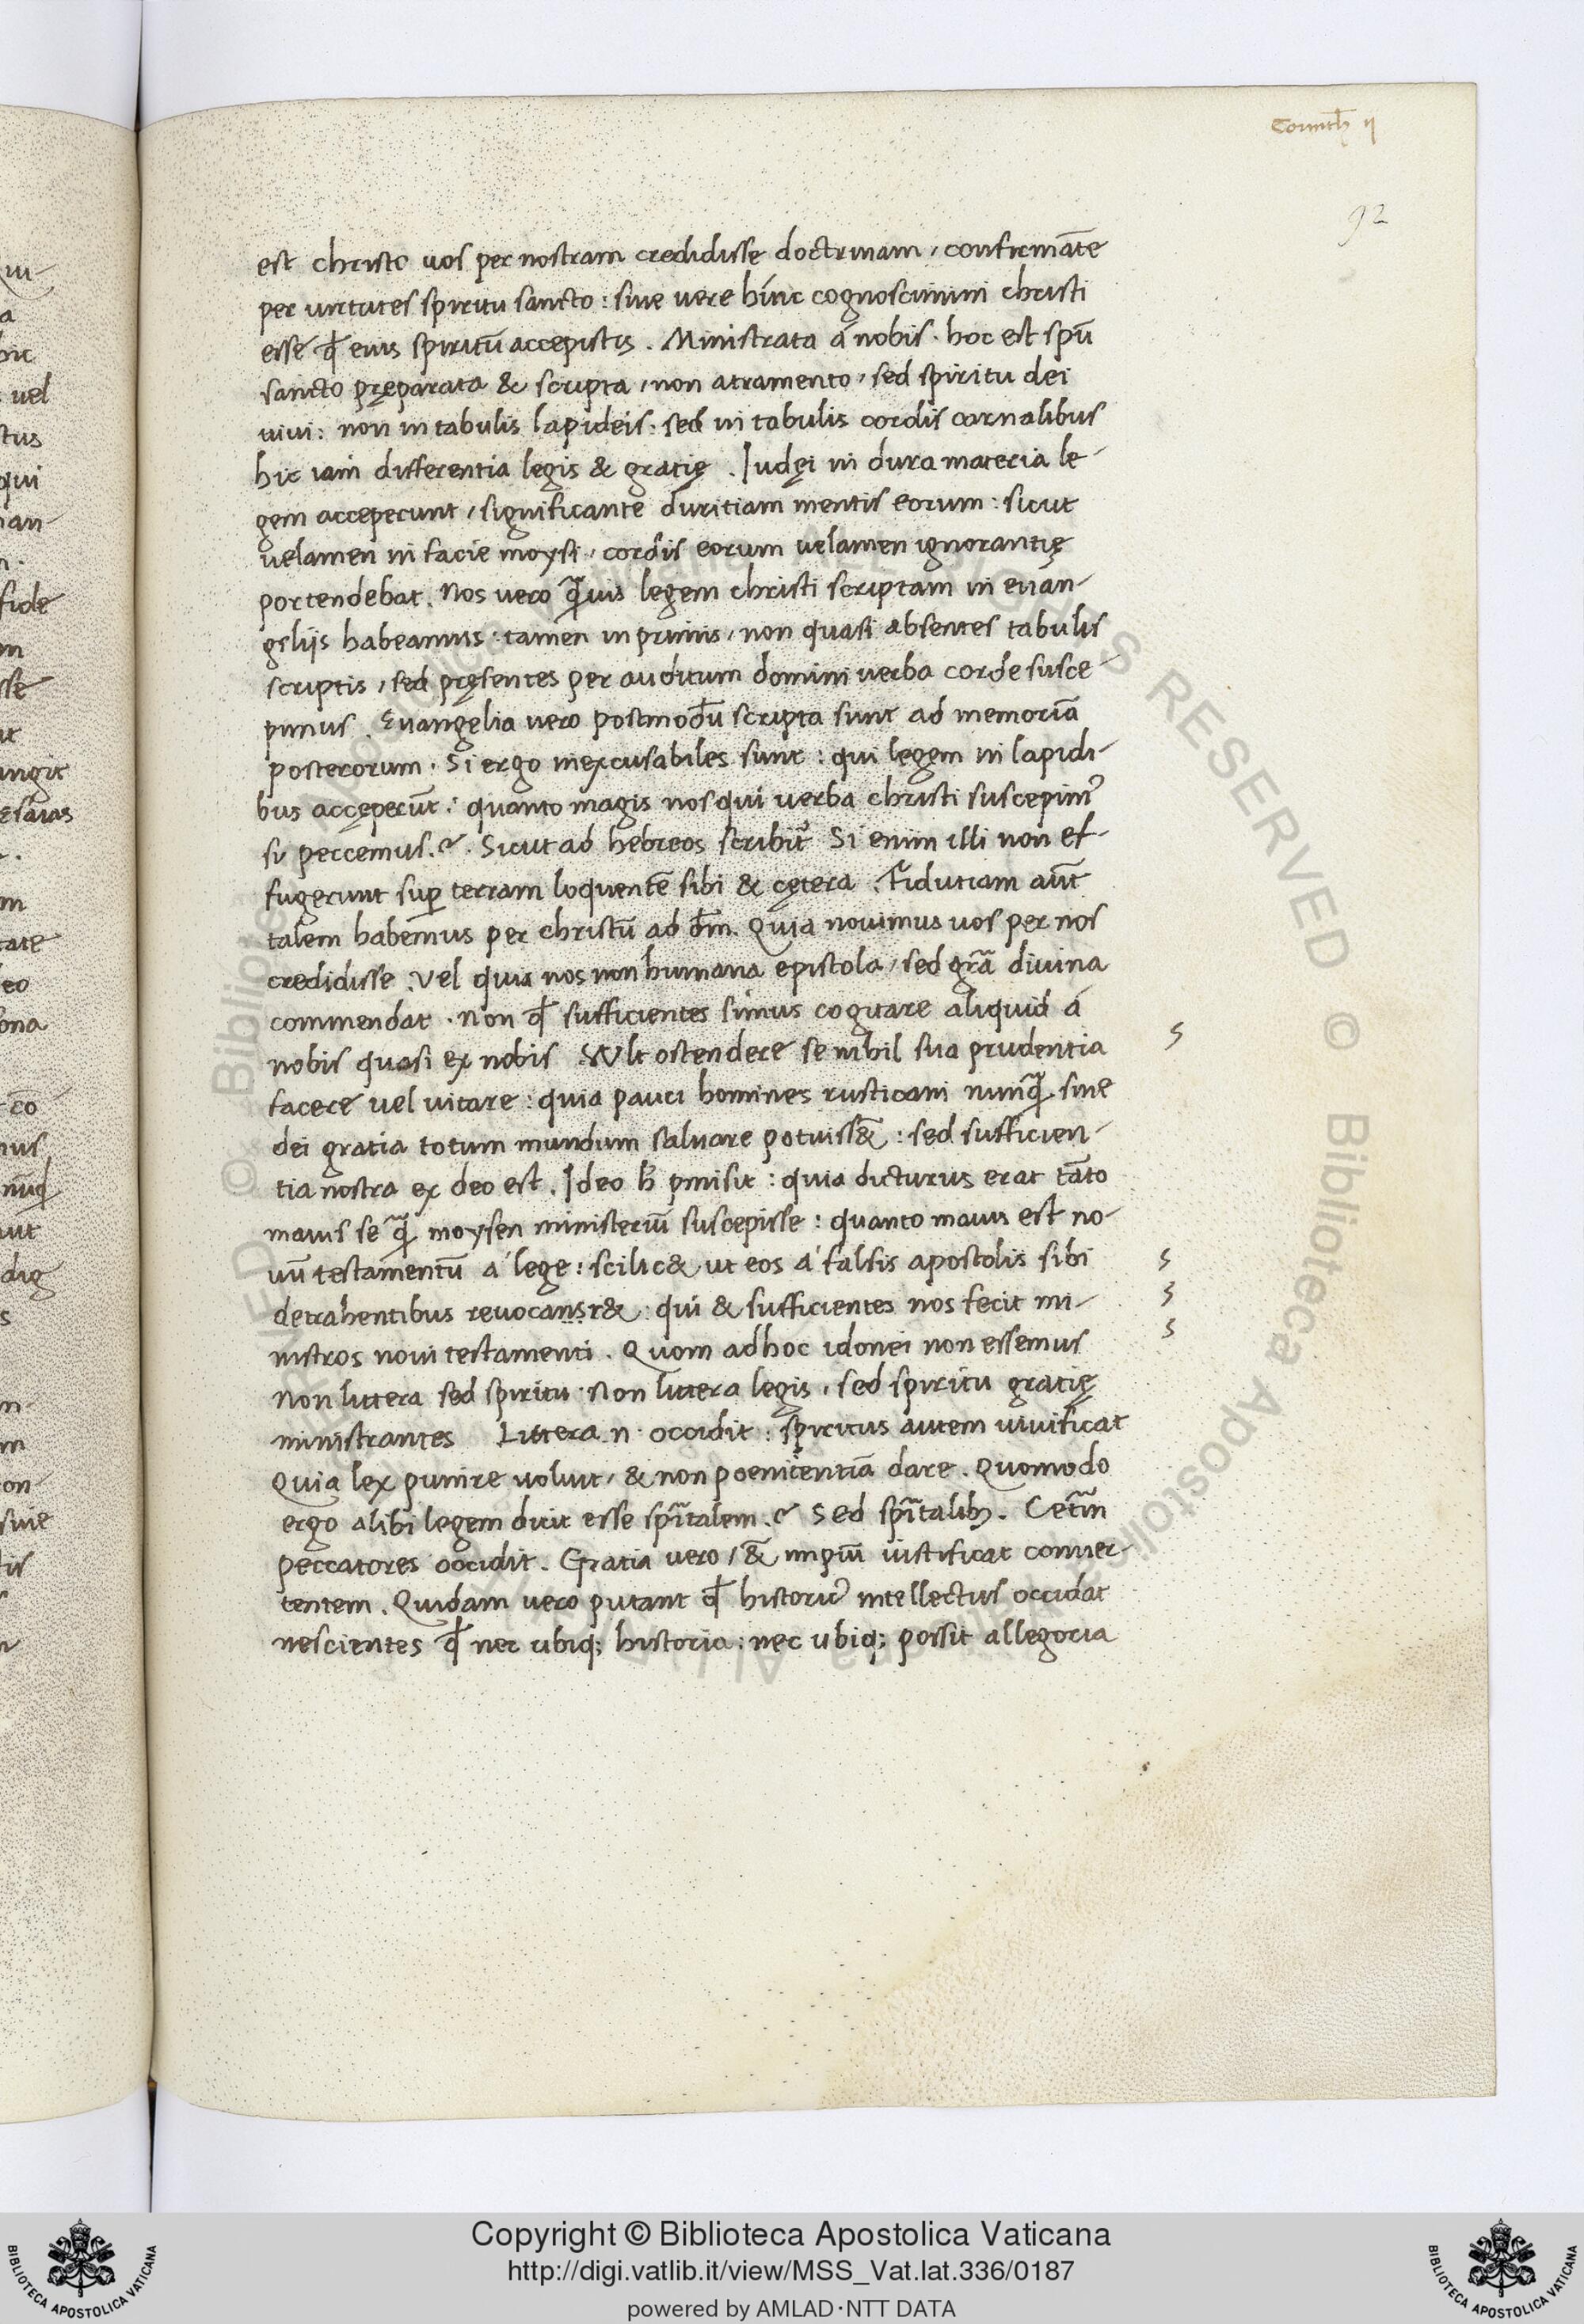 Corinth̄ ij
92
est christo uos per nostram credidisse doctrinam, confirmāte
per uirtutes spiritu sancto: siue uere hinc cognoscimini christi
esse qđ eius spiritū accepistis. Ministrata á nobis. hoc est spū
sancto pręparata & scripta, non atramento, sed spiritu dei
uiui: non in tabulis lapideis: sed in tabulis cordis carnalibus
hic iam differentia legis & gratię. Iudęi in dura materia le-
gem acceperunt, significante duritiam mentis eorum: sicut
uelamen in facie moysi, cordis eorum uelamen ignorantię
portendebat. Nos uero q̃uis legem christi scriptam in euan-
gelijs habeamus: tamen in primis, non quasi absentes tabulis
scriptis, sed pręsentes per auditum domini uerba corde susce-
pimus. Euangelia uero postmodū scripta sunt ad memoriā
posterorum. Si ergo inexcusabiles sunt: qui legem in lapidi-
bus accęperūt: quanto magis nos qui uerba christi suscepim⁹
si peccemus.? Sicut ad hebreos scribit̃ Si enim illi non ef-
fugerunt suꝑ terram loquentē sibi & cętera. Fidutiam aūt
talem habemus per christū ad dm̄. Quia nouimus uos per nos
credidisse. Vel quia nos non humana epistola, sed grã diuina
commendat. Non qđ sufficientes simus cogitare aliquid á
nobis quasi ex nobis Vult ostendere se nihil sua prudentia
facere uel uitare: quia pauci homines rusticani nunq̃ sine
dei gratia totum mundum saluare potuiss&̄: sed sufficien-
tia nostra ex deo est. Ideo h̄ p̄misit: quia dicturus erat tāto
maius se q̃ moysen ministeriū suscepisse: quanto maius est no-
uū testamentū á lege: scilic& ut eos á falsis apostolis sibi
detrahentibus reuocansr&: qui & sufficientes nos fecit mi-
nistros noui testamenti. Quom ad hoc idonei non essemus
Non littera sed spiritu. Non littera legis, sed spiritu gratię
ministrantes Littera .n. occidit: spiritus autem uiuificat
Quia lex punire uoluit, & non poenitentiā dare. Quomodo
ergo alibi legem dicit esse spr̄italem.? Sed spr̄italib⁊. Cetr̄m
peccatores occidit. Gratia uero, &̄ impiū iustificat conuer-
tentem. Quidam uero putant qđ historic⁹ intellectus occidat
nescientes qđ nec ubiq; historia: nec ubiq; possit allegoria
Copyright © Biblioteca Apostolica Vaticana
http://digi.vatlib.it/view/MSS_Vat.lat.336/0187
powered by AMLAD·NTT DATA